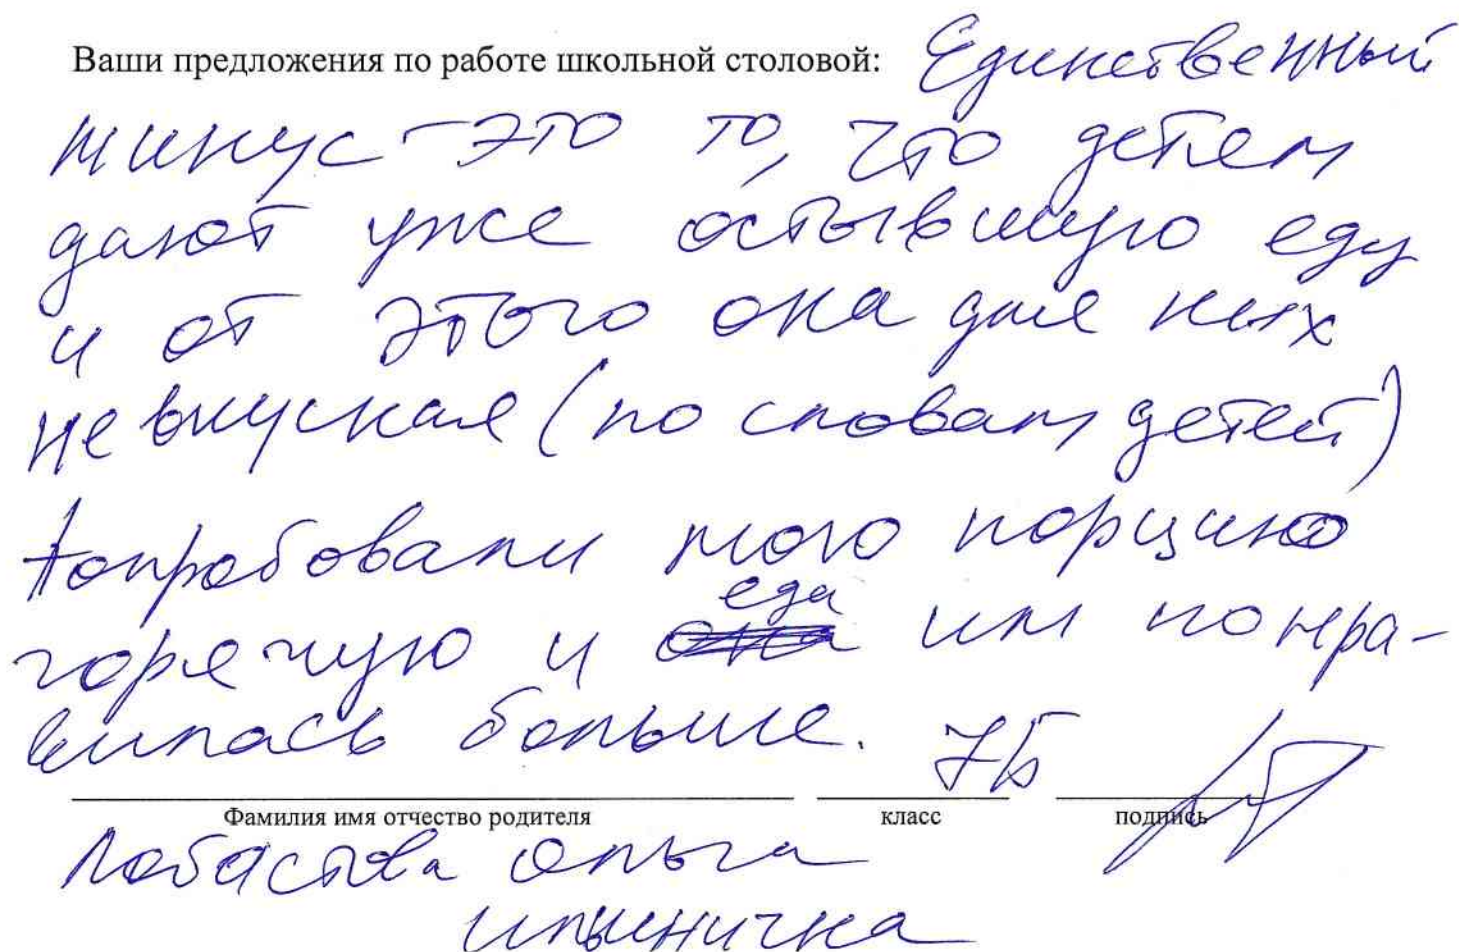 Ваши предложения по работе школьной столовой: Единственный
минус - это то, что детям
дают уже остывшую еду
и от этого она для них
не вкусная (по словам детей)
Попробовали мою порцию
горячую и еда им понра-
вилась больше. 7Б
Фамилия имя отчество родителя класс подпись
Ольга
Ильинична